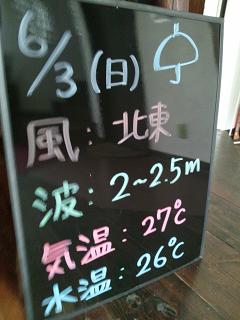 6/3(日)
風:北東
波:2~2.5m
気温:27℃
水温:26℃